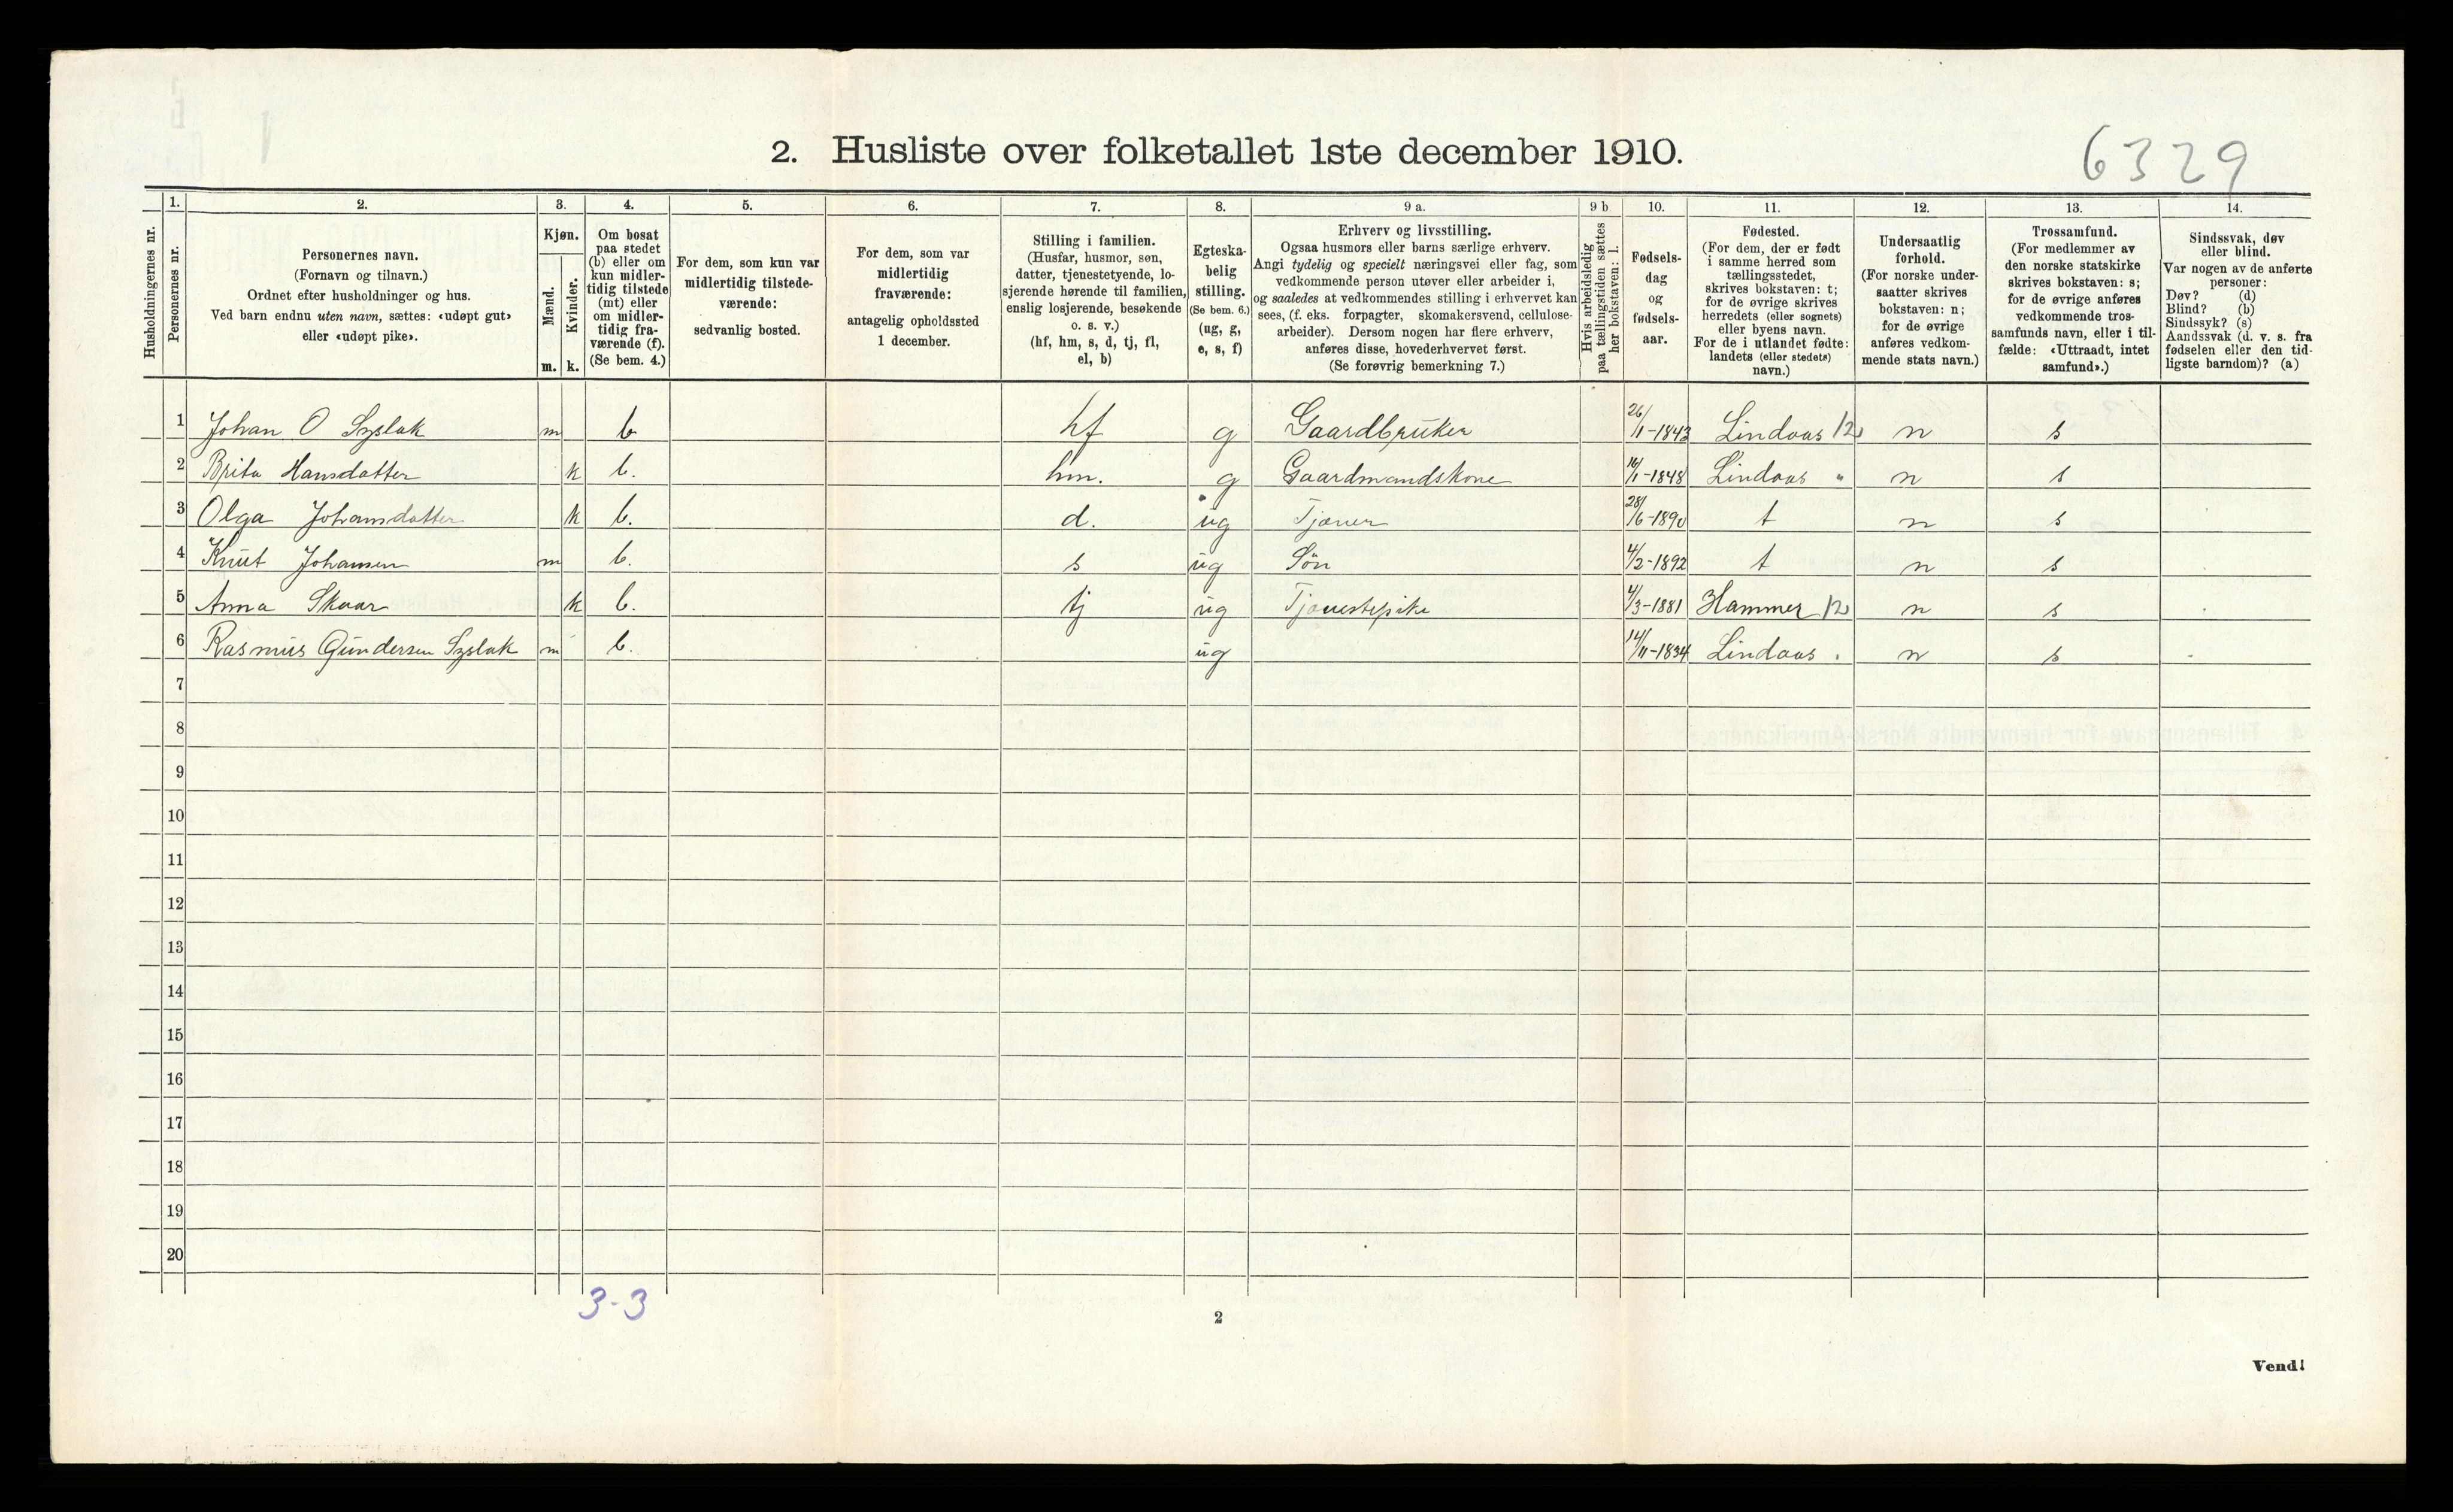 2. Husliste over folketallet 1ste december 1910.
6329
Husholdningernes nr.
1.
Personernes nr.
2.
Personernes navn.
(Fornavn og tilnavn.)
Ordnet efter husholdninger og hus.
Ved barn endnu uten navn, sættes: «udøpt gut»
eller «udøpt pike».
3.
Kjøn.
Mænd.
m.
Kvinder.
k.
4.
Om bosat
paa stedet
(b) eller om
kun midler-
tidig tilstede
(mt) eller
om midler-
tidig fra-
værende (f).
(Se bem. 4.)
5.
For dem, som kun var
midlertidig tilstede-
værende:
sedvanlig bosted.
6.
For dem, som var
midlertidig
fraværende:
antagelig opholdssted
1 december.
7.
Stilling i familien.
(Husfar, husmor, søn,
datter, tjenestetyende, lo-
sjerende hørende til familien,
enslig losjerende, besøkende
o. s. v.)
(hf, hm, s, d, tj, fl,
el, b)
8.
Egteska-
belig
stilling.
(Se bem. 6.)
(ug, g,
e, s, f)
9 a.
Erhverv og livsstilling.
Ogsaa husmors eller barns særlige erhverv.
Angi tydelig og specielt næringsvei eller fag, som
vedkommende person utøver eller arbeider i,
og saaledes at vedkommendes stilling i erhvervet kan
sees, (f. eks. forpagter, skomakersvend, cellulose-
arbeider). Dersom nogen har flere erhverv,
anføres disse, hovederhvervet først.
(Se forøvrig bemerkning 7.)
9 b
Hvis arbeidsledig
paa tællingstiden sættes
her bokstaven: l.
10.
Fødsels-
dag
og
fødsels-
aar.
11.
Fødested.
(For dem, der er født
i samme herred som
tællingsstedet,
skrives bokstaven: t;
for de øvrige skrives
herredets (eller sognets)
eller byens navn.
For de i utlandet fødte:
landets (eller stedets)
navn.)
12.
Undersaatlig
forhold.
(For norske under-
saatter skrives
bokstaven: n;
for de øvrige
anføres vedkom-
mende stats navn.)
13.
Trossamfund.
(For medlemmer av
den norske statskirke
skrives bokstaven: s;
for de øvrige anføres
vedkommende tros-
samfunds navn, eller i til-
fælde: «Uttraadt, intet
samfund».)
14.
Sindssvak, døv
eller blind.
Var nogen av de anførte
personer:
Døv? (d)
Blind? (b)
Sindssyk? (s)
Aandssvak (d. v. s. fra
fødselen eller den tid-
ligste barndom)? (a)
1 Johan O Syslak m b hf g Gaardbruker 26/1-1843 Lindaas 12 n s
2 Brita Hansdatter k b. hm. g Gaardmandskone 16/1-1848 Lindaas " n s
3 Olga Johansdatter k b. d. ug Tjæner 28/6-1890 t n s
4 Knut Johansen m b. s ug Søn 4/2-1892 t n s
5 Anna Skaar k b. tj ug Tjenestepike 4/3-1881 Hammer 12 n s
6 Rasmus Gundersen Syslak m b. ug 14/11-1834 Lindaas " n s
7
8
9
10
11
12
13
14
15
16
17
18
19
20
3-3
2
Vend!